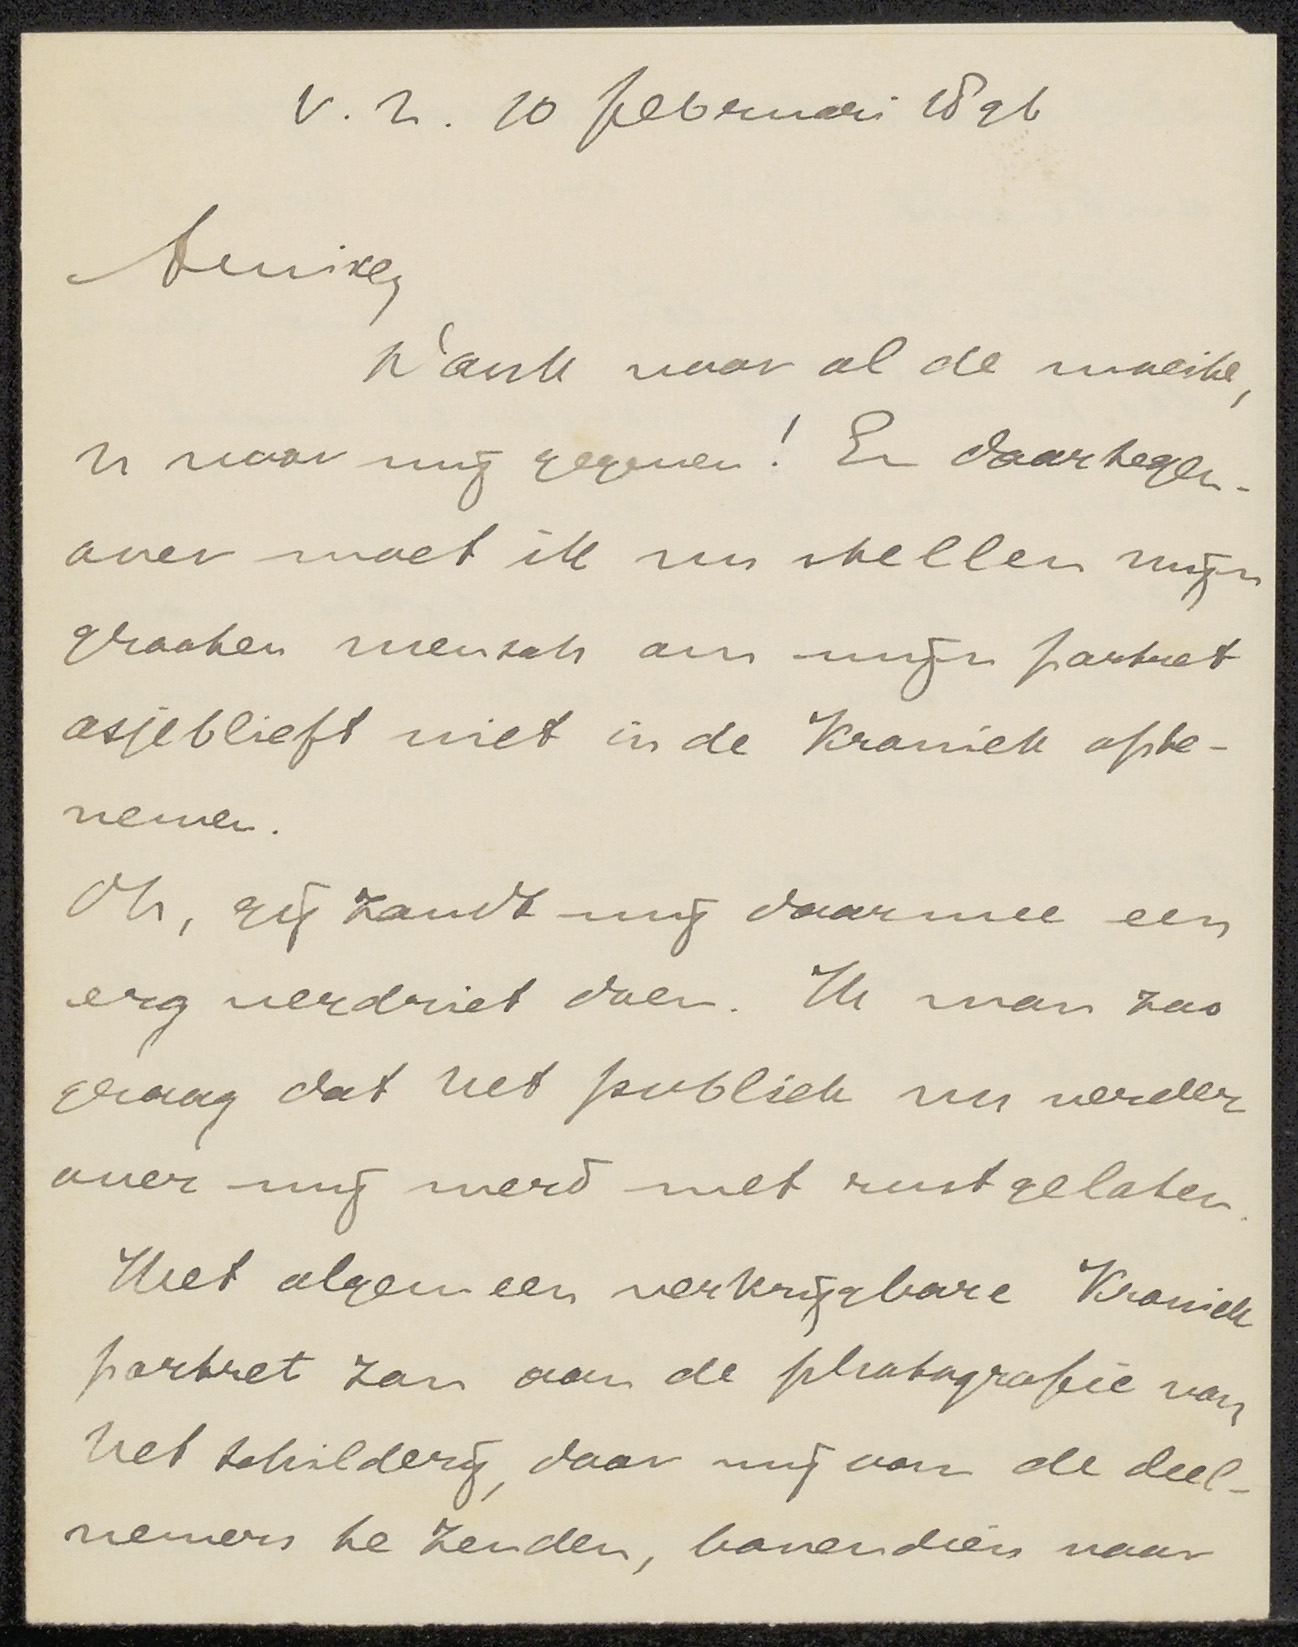 V. N. 10 februari 1896
Amice,
Dank voor al de moeite,
U voor mij gegeven! En daartegen-
over moet ik nu stellen mijn
grooten wensch om mijn portret
asjeblieft niet in de Kroniek opte-
nemen.
Oh, gij zoudt mij daarmee een
erg verdriet doen. Ik wou zoo
graag dat het publiek nu verder
over mij werd met rust gelaten.
Het algemeen verkrijgbare Kroniek
portret zou aan de photografie van
het schilderij, door mij aan de deel-
nemers te zenden, bovendien voor